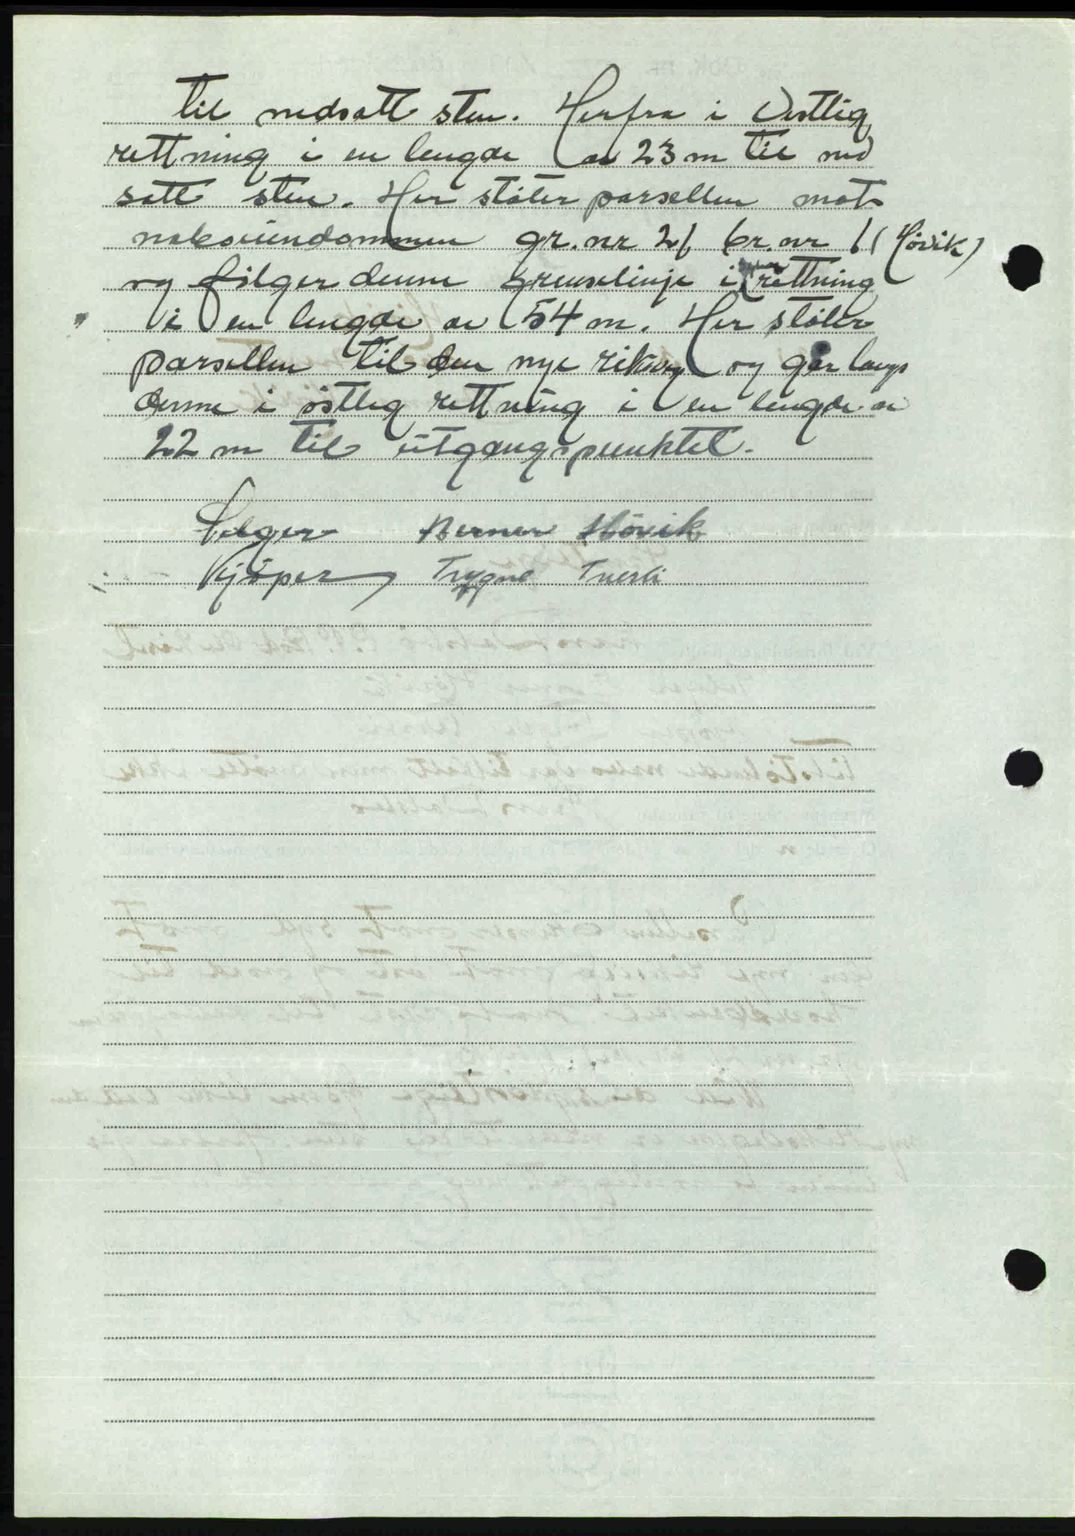 til nedsatt sten. Herfra i Vestlig
rettning i en lengde av 23 m til ned
satt sten. Her støter parsellen mot
naboeiendommen gr. nr 21 br. nr 1 (Hövik)
og følger denne grenselinje i rettning
i en lengde av 54 m. Her støter
parsellen til den nye riksveg og går langs
denne i östlig rettning i en lengde av
22 m til utgangspunktet.
Selger Berner Hövik
Kjöper Trygve